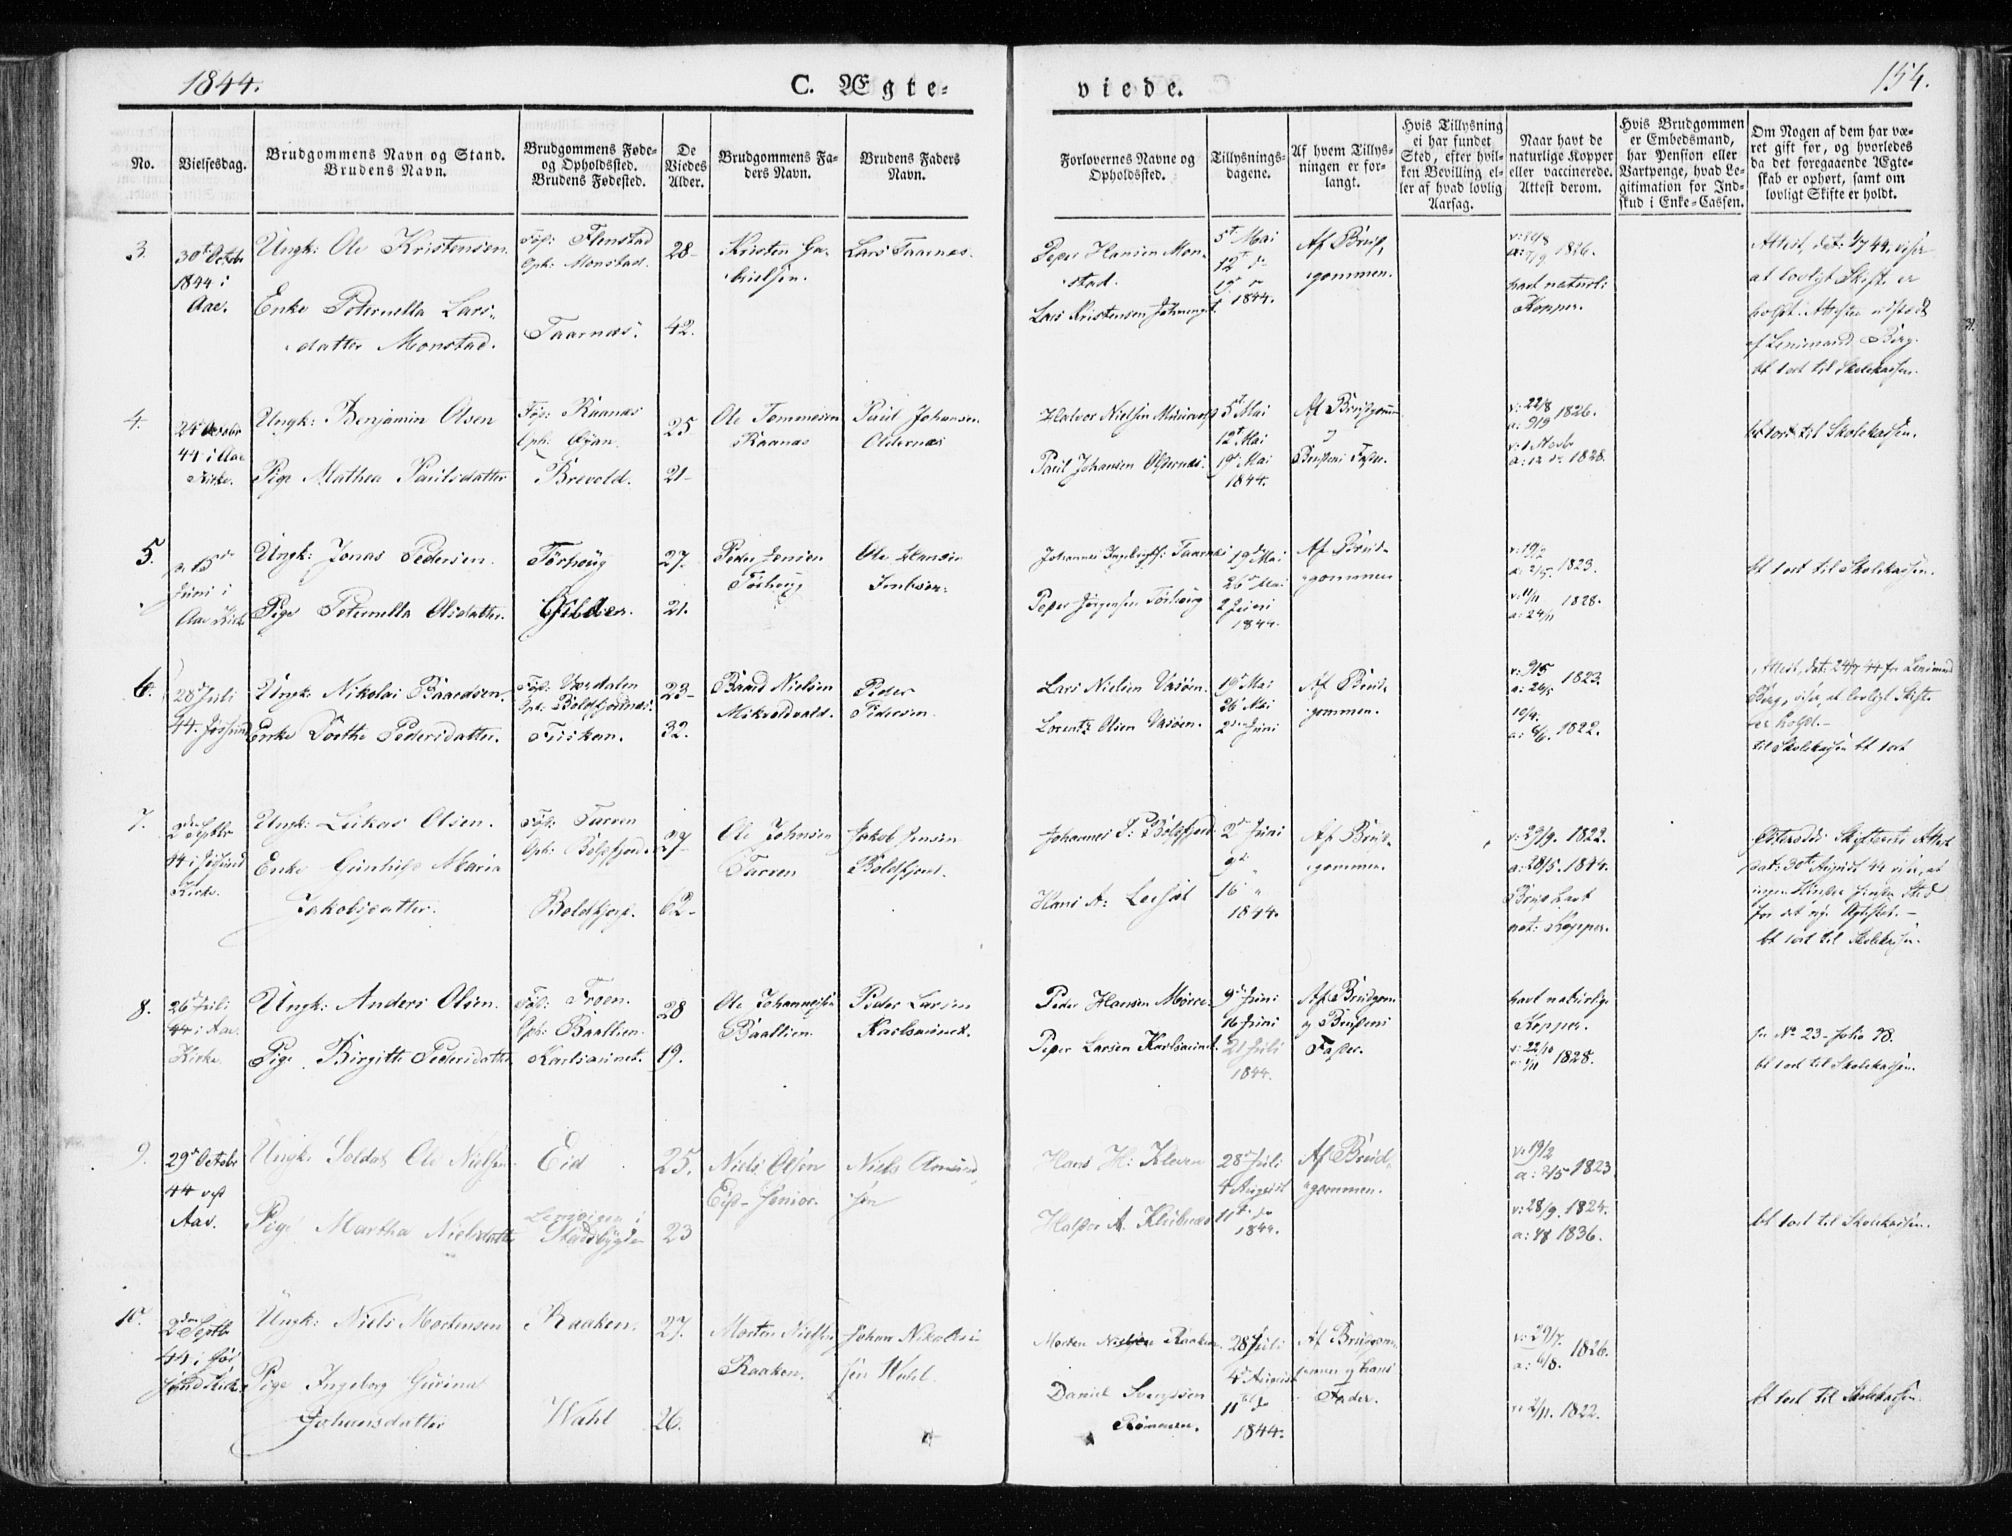 1844.
C. Ægte-
viede.
154.
No.
Vielsesdag.
Brudgommens Navn og Stand.
Brudens Navn.
Brudgommens Føde-
og Opholdssted.
Brudens Fødested.
De
Viedes
Alder.
Brudgommens Fa-
ders Navn.
Brudens Faders
Navn.
Forlovernes Navne og
Opholdssted.
Tillysnings-
dagene.
Af hvem Tillys-
ningen er for-
langt.
Hvis Tillysning
ei har fundet
Sted, efter hvil-
ken Bevilling el-
ler af hvad lovlig
Aarsag.
Naar havt de
naturlige Kopper
eller vaccinerede.
Attest derom.
Hvis Brudgommen
er Embedsmand,
har Pension eller
Vartpenge, hvad Le-
gitimation for Ind-
skud i Enke-Cassen.
Om Nogen af dem har væ-
ret gift før, og hvorledes
da det foregaaende Ægte-
skab er ophørt, samt om
lovligt Skifte er holdt.
3.
30t Octbr
1844 i
Aae.
Ungk: Ole Kristensen.
Enke Peternella Lars-
datter Monstad.
Fød:
Oph: Monstad.
Taarnæs.
28-
42.
Kristen
Lars Taarnæs.
Peder Hansen Mon-
stad.
Lars Kristensen
5t Mai
12t do
19 do
1844.
Af Brud-
gommen.
1826.
havt naturl:
Kopper.
Attest, dat: 1/7 44, viser
at lovligt Skift. er
holdt. Attesten udstædt
af Lensmand Berg.
bt 1 ort til Skolekassen.
4.
44 i Aae
Kirke.
Ungk: Benjamin Olsen
Pige Mathea Paulsdatter
Fød: Raanæs
Oph: Øyan.
Brevold.
25
21-
Ole Tommesen
Raanæs
Paul Johansen
Oldernæs
Halvor Nielsen
Paul Johansen Oldernæs.
5t Mai
12t Mai
19t Mai
1844.
Af Brudgomm
og
Brudens Fader.
v: 22/8
a: 9/9 1826.
1828.
bt 1 ort til Skolekassen.
5.
15
Juni i
Aae Kirke
Ungk: Jonas Pedersen.
Pige Peternella Olsdatter.
Tørhoug
27.
21.
Peder Jensen
Tørhoug
Ole Hansen
Johannes Ingebrigts: Taarnæs
Peder Jørgensen Tørhoug
19d Mai
26d Mai
2 Juni
1844.
Af Brud-
gommen
v: 19/2
a: 2/5. 1823.
v: 11/11
a: 24/11 1828.
bt 1 ort til Skolekassen.
6.
28d Juli
44. Jøssund
Ungk: Nikolai Baardsen.
Enke Dorthe Pedersdatter.
Fød: Værdalen
Oph: Boldfjordnæs.
Fiskan.
23-
32.
Baard Nielsen
Peder
Pedersen
Lars Nielsen
Lorentz Olsen
19d Mai
26d Mai
2den Juni
Af Brud-
gommen.
v: 9/5
a: 26/5 1823.
10/4.
a: 6/6. 1822.
Attest, dat: 24/7 44 fr Lensmand
Berg, viser, at lovligt Skifte
er holdt.-
til Skolekassen bt 1 ort
7.
2den Septbr
44 i Jøssund
Kirke.
Ungk: Lukas Olsen.
Enke Gunhild Maria
Jakobsdatter.
Fød: Tarven
Oph: Boldfjord.
Boldfjord.
27-
62-
Ole Johnsen
Tarven
Jakob Jensen
Boldfjord.
Johannes P: Boldfjord
Hans A:
2d Juni
9d "
16 "
1844.
Af Brud-
gommen.
v: 29/9. 1822.
a: 28/5. 1844.
Brud havt
nat: Kopper.
Skifterets Attest
dat: 30t August 44 viser, at
ingen Hinder finder Sted
for det nye Ægtesk. -
bt 1 ort til Skolekassen.
8.
26d Juli
44 i Aae
Kirke.
Ungk: Anders Olsen.
Pige Birgitte Pedersdatter
Fød: Troen.
Oph: Baallien.
Karlsaunet.
28
19.
Ole Johannessen
Baallien.
Peder Larsen
Karlsaunet.
Peder Hansen Mørre.
Peder Larsen Karlsaunet.
9d Juni
16 Juni
21 Juli
1844.
Af Brudgom.
og Brudens
Fader.
havt naturlig
Kopper.
v: 22/10
1828.
fr No 23 - folio 98.
bt 1 ort til Skolekassen.
9.
29d Octobr
44 ved
Aae.
Ungk. Soldat Ole Nielsen
Pige Martha Nielsdatter
Eid
Stadsbygden
25.
23
Niels Olsen
Eid - Senior.
Niels Amund-
sen
Hans H: Kleven
Halvor A.
28d Juli
4 August
11t do
1844.
Af Brud-
gommen.
v: 19/2
a: 2/5 1823
v: 28/9. 1824.
1836.
bt 1 ort til Skolekassen.
10.
2den Septbr
44 i Jøs-
sund Kirk.
Ungk: Niels Mortensen
Pige Ingeborg Gurina
Johansdatter
Raaken.
Wahl
27.
26.
Morten Nielsen
Raaken.
Johan Nikolai-
sen Wahl.
Morten Nielsen Raaken.
Daniel Svendsen
Rømmen.
28 Juli
4d August
11te do
1844.
Af Brudgom-
men og hans
Fader.
v: 29/7.
a: 6/8. 1826.
v: 2/11. 1822.
bt 1 ort til Skolekassen.